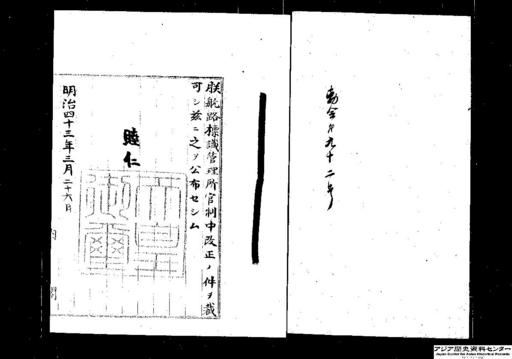 勅令第九十二号
朕航路標識管理所官制中改正ノ件ヲ裁
可シ茲ニ之ヲ公布セシム
睦仁
天皇御璽
明治四十三年三月二十六日
内閣
アジア歴史資料センター
Japan Center for Asian Historical Records